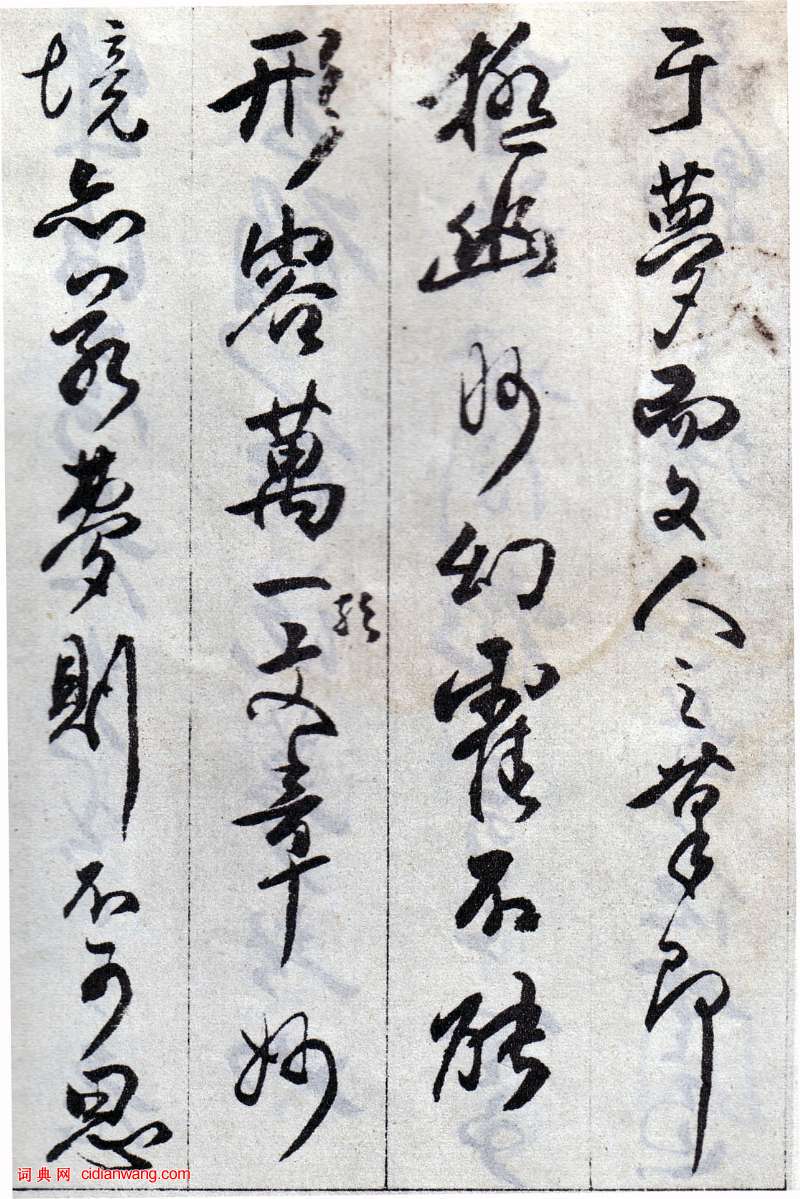 于夢而文人之筆即
極幽眇幻霍不能
形容萬一上文章妙
境亦若夢則不可思
词典网 cidianwang.com